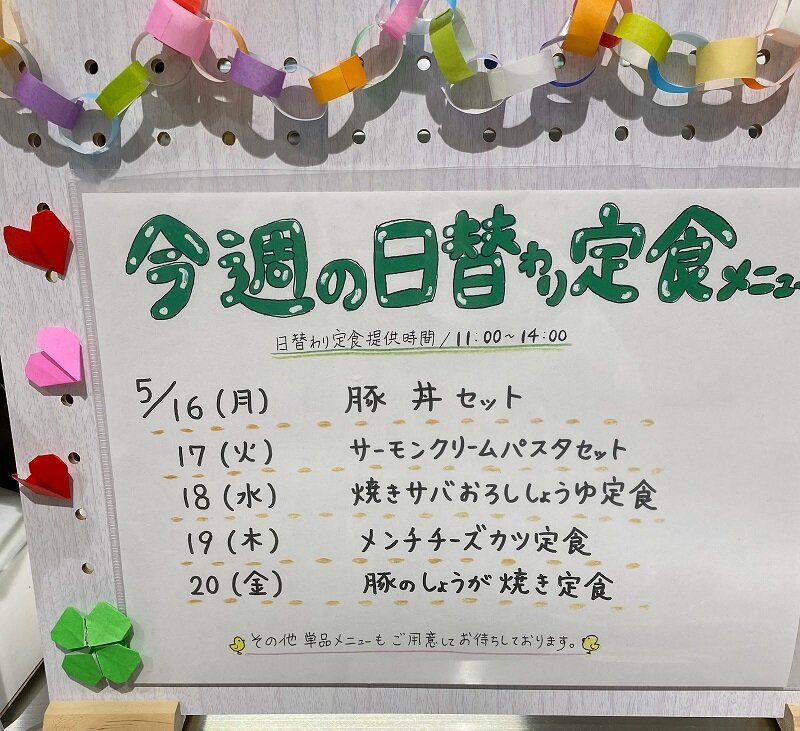 今週の日替わり定食メニュー
日替わり定食提供時間/11:00~14:00
5/16(月) 豚丼セット
17(火) サーモンクリームパスタセット
18(水) 焼きサバおろししょうゆ定食
19(木) メンチチーズカツ定食
20(金) 豚のしょうが焼き定食
その他単品メニューもご用意してお待ちしております。